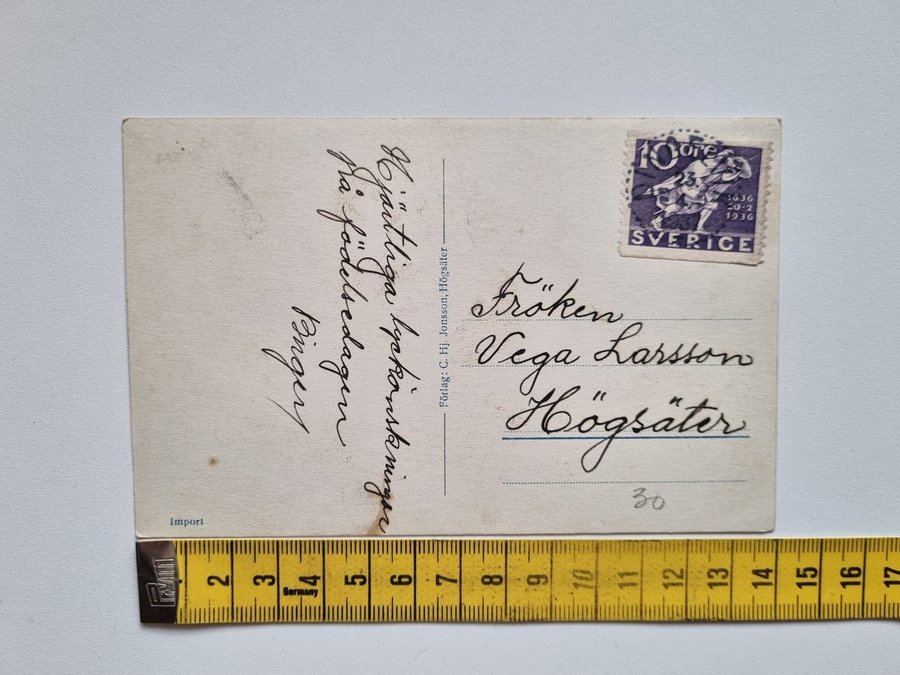 Hjärtliga lyckönskningar
på födelsedagen
Birger
Förlag: C. Hj. Jonsson, Högsäter
10 öre
1636
20-2
1936
SVERIGE
23
Fröken
Vega Larsson
Högsäter
30
Import
2 3 4 5 6 7 8 9 10 11 12 13 14 15 16 17
Germany